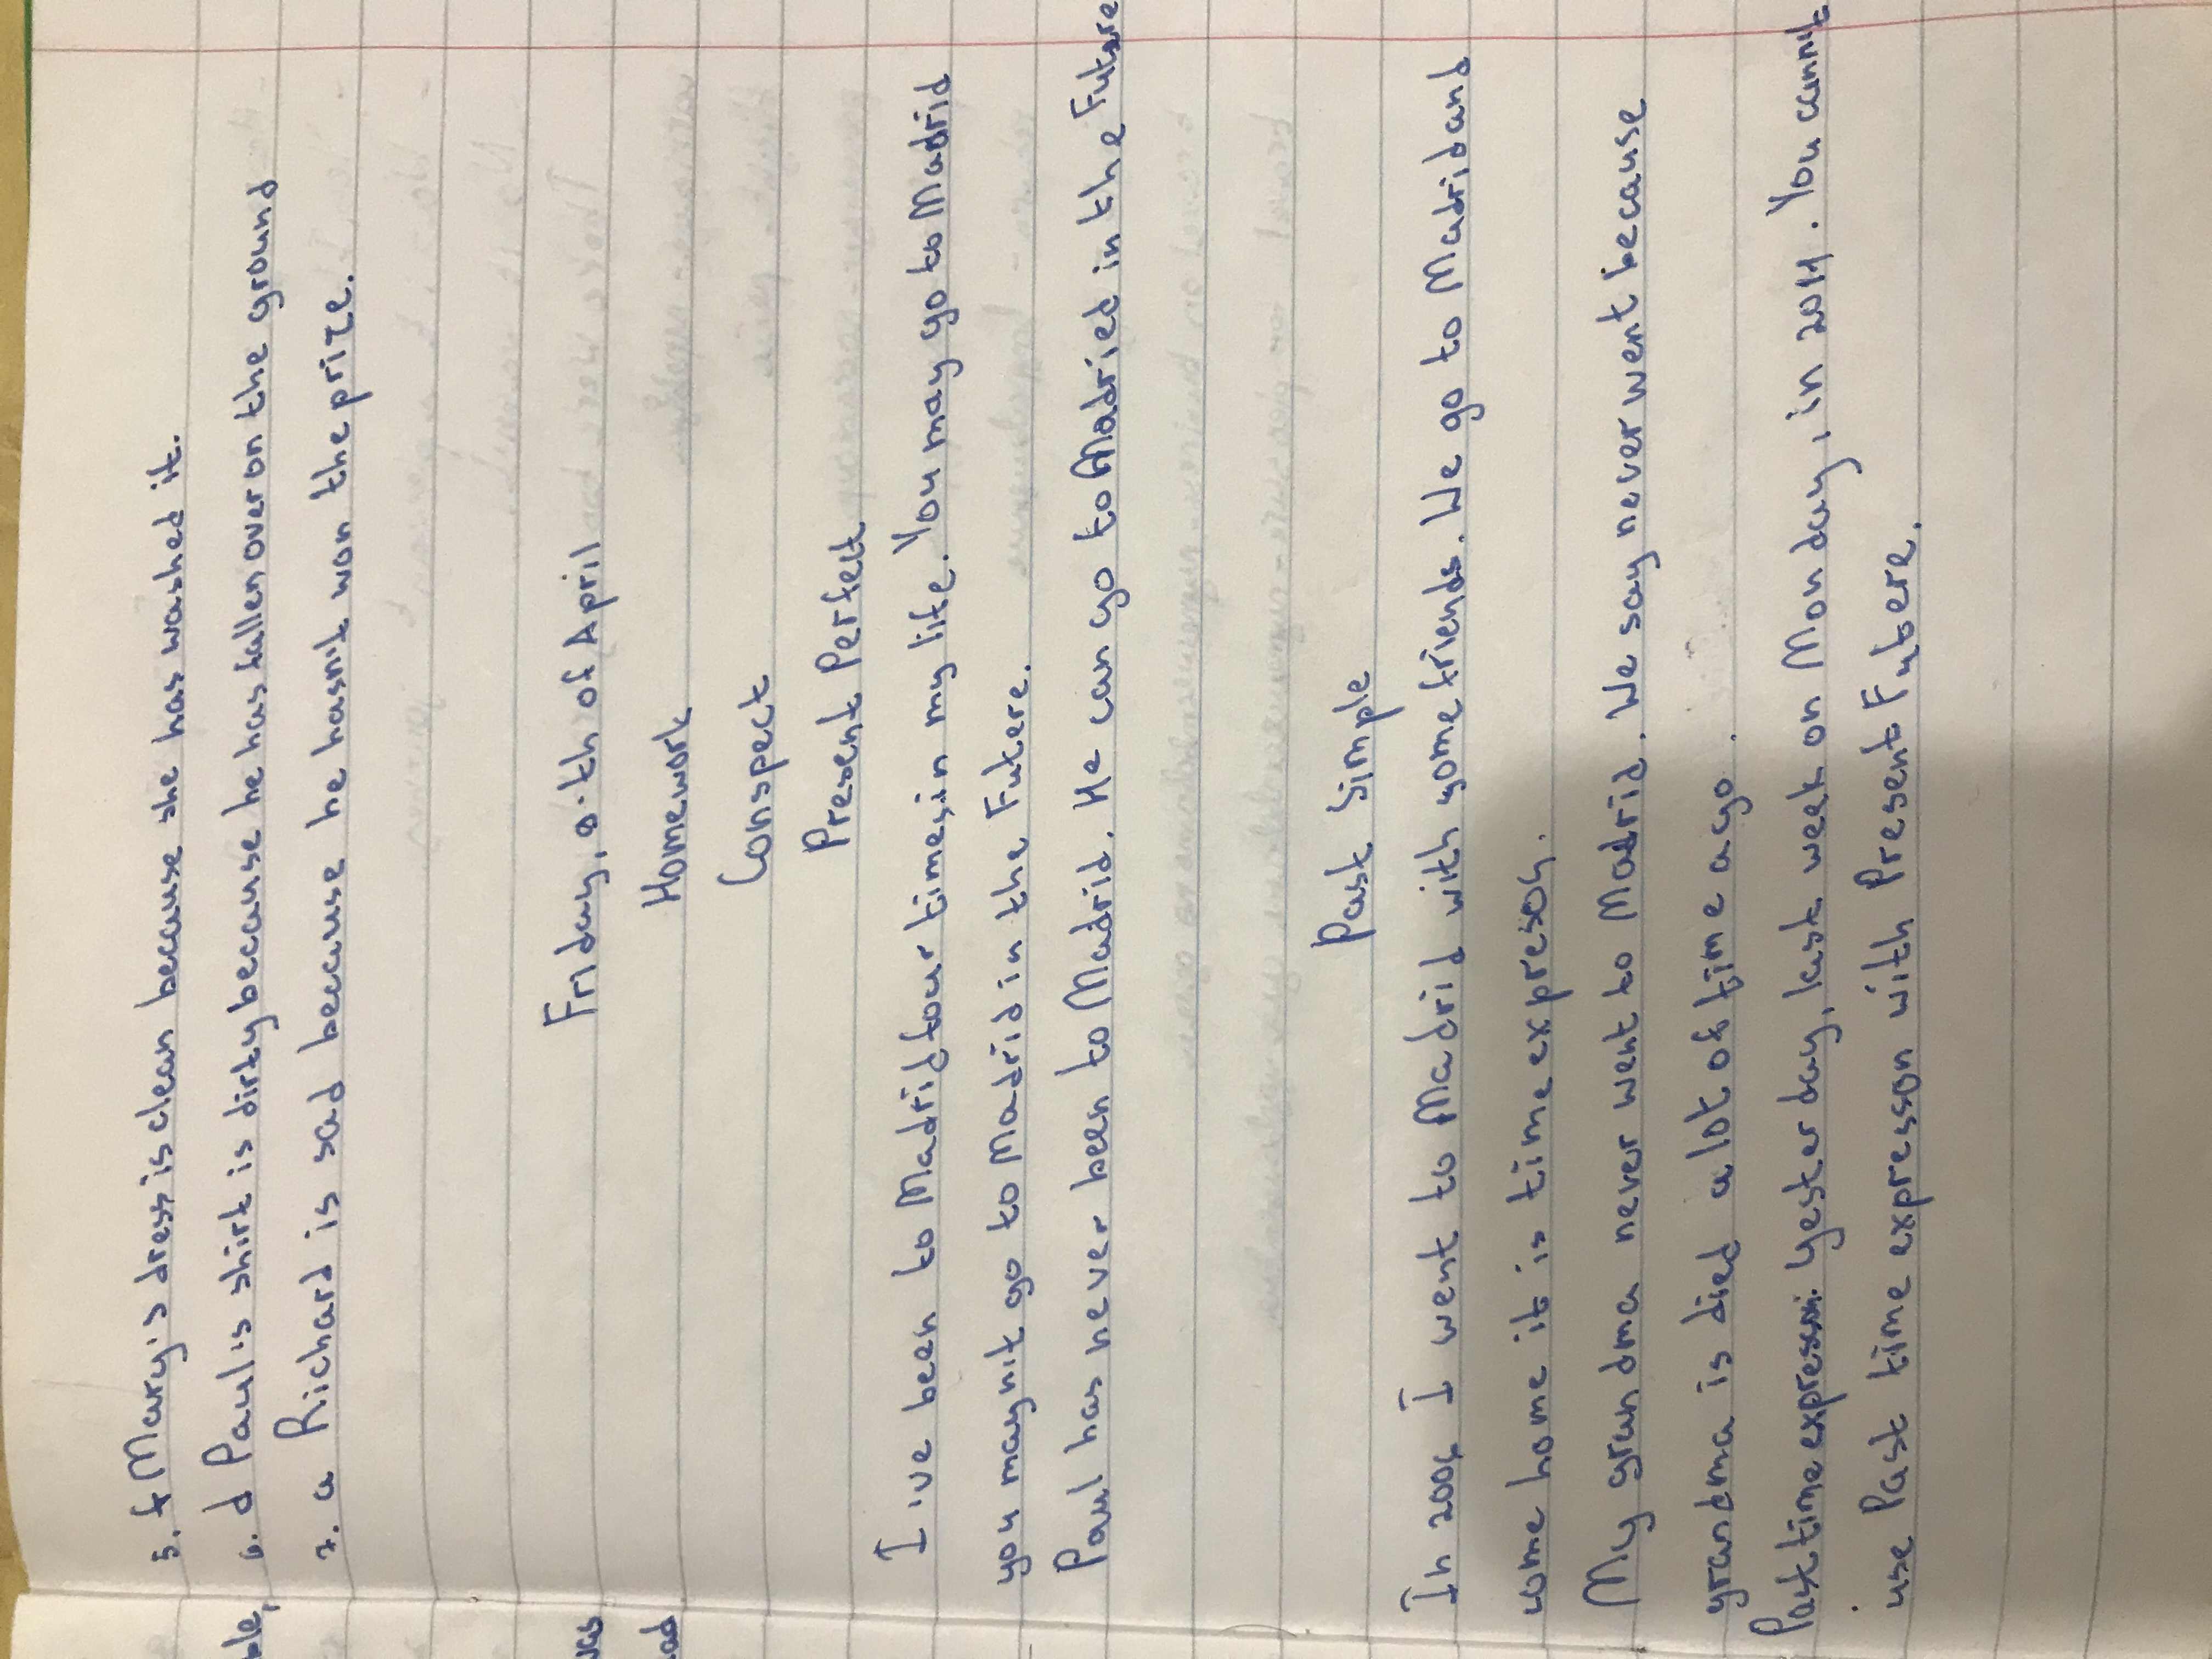 5. f Mary's dress is clean because she has washed it.
6. d Paul's shirt is dirty because he has fallen over on the ground
7. a Richard is sad because he hasn't won the prize.
Friday, of April
Homework
Conspect
Present Perfect
I've been to Madrid four times, in my life. You may go to Madrid
you mayn't go to Madrid in the Futere.
Paul has never been to Madrid. He can go to Madried in the Future
Past Simple
In I went to Madrid with some friends. We go to Madrid and
come home it is time expreson.
My grandma never went to Madrid. We say never went because
grandma is died a lot of time ago.
Past time expresson: yesterday, last week on Monday, in 2014. You cannit
use Past time expresson with Present Futere.
ble,
ves
ad